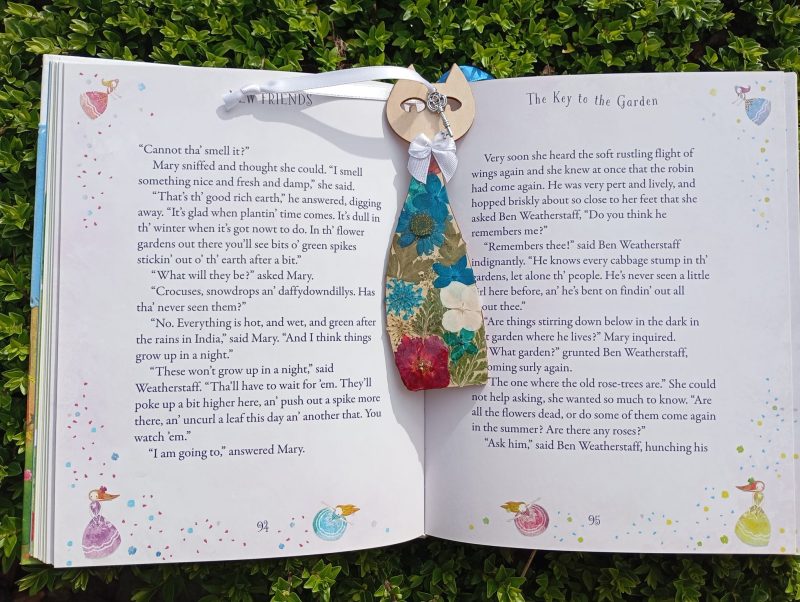 FRIENDS
“Cannot tha’ smell it?”
Mary sniffed and thought she could. “I smell
something nice and fresh and damp,” she said.
“That’s th’ good rich earth,” he answered, digging
away. “It’s glad when plantin’ time comes. It’s dull in
th’ winter when it’s got nowt to do. In th’ flower
gardens out there you’ll see bits o’ green spikes
stickin’ out o’ th’ earth after a bit.”
“What will they be?” asked Mary.
“Crocuses, snowdrops an’ daffydowndillys. Has
tha’ never seen them?”
“No. Everything is hot, and wet, and green after
the rains in India,” said Mary. “And I think things
grow up in a night.”
“These won’t grow up in a night,” said
Weatherstaff. “Tha’ll have to wait for ’em. They’ll
poke up a bit higher here, an’ push out a spike more
there, an’ uncurl a leaf this day an’ another that. You
watch ’em.”
“I am going to,” answered Mary.
94
The Key to the Garden
Very soon she heard the soft rustling flight of
wings again and she knew at once that the robin
had come again. He was very pert and lively, and
hopped briskly about so close to her feet that she
asked Ben Weatherstaff, “Do you think he
remembers me?”
“Remembers thee!” said Ben Weatherstaff
indignantly. “He knows every cabbage stump in th’
gardens, let alone th’ people. He’s never seen a little
here before, an’ he’s bent on findin’ out all
thee.”
“Are things stirring down below in the dark in
garden where he lives?” Mary inquired.
“What garden?” grunted Ben Weatherstaff,
surly again.
“The one where the old rose-trees are.” She could
not help asking, she wanted so much to know. “Are
all the flowers dead, or do some of them come again
in the summer? Are there any roses?”
“Ask him,” said Ben Weatherstaff, hunching his
95